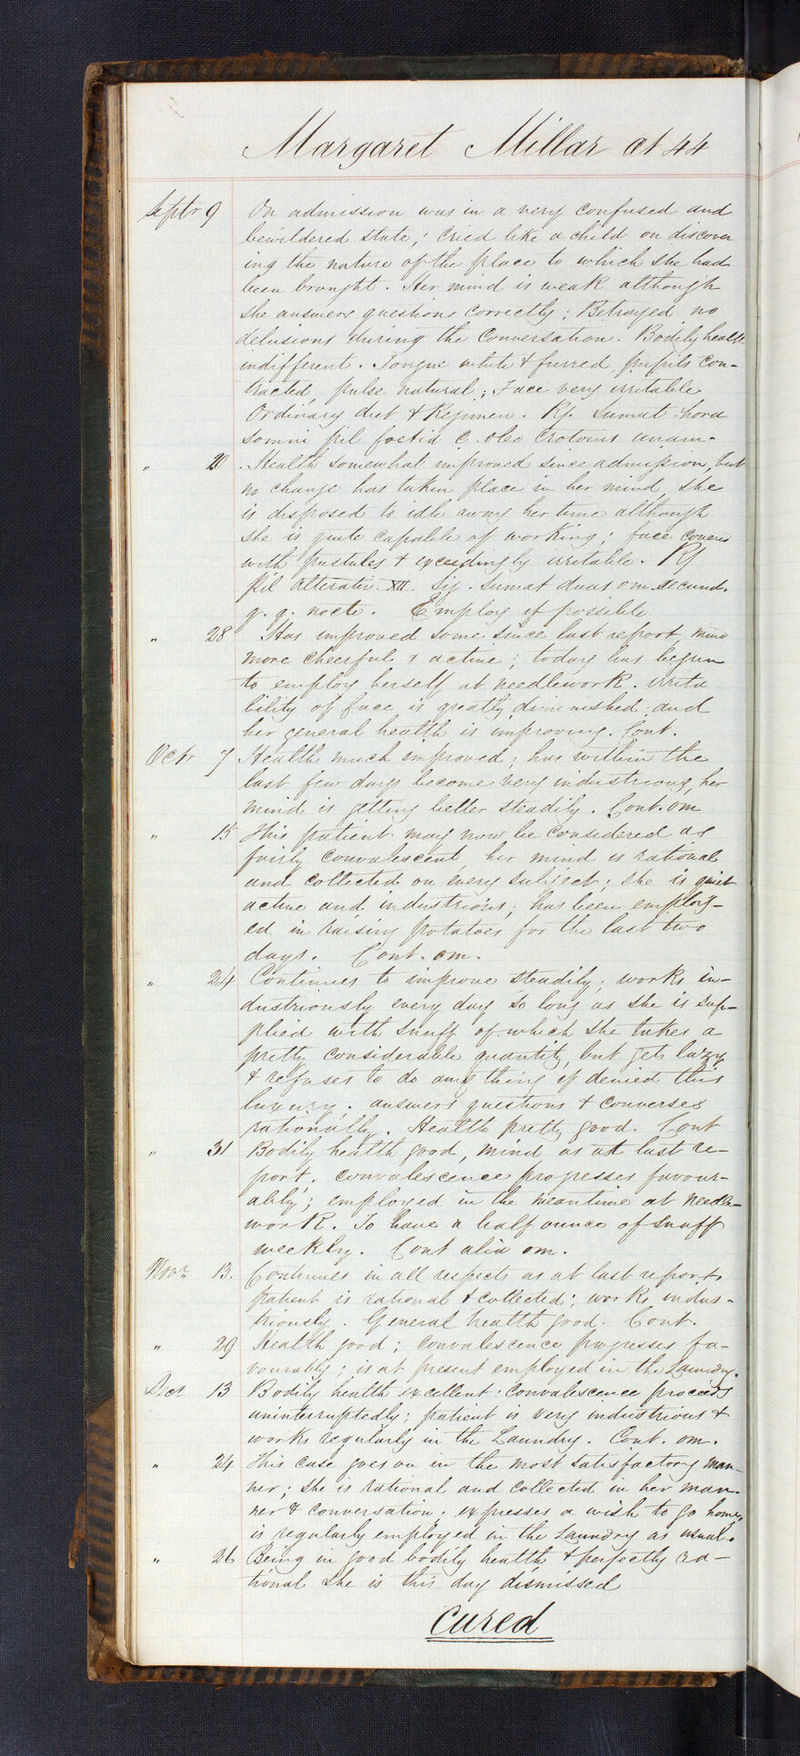 Margaret Millar at 44
Septr 9 On admission was in a very confused and
bewildered state; cried like a child on discover
ing the nature of the place to which she had
been brought. Her mind is weak although
she answers questions correctly; Betrayed no
delusions during the conversation. Bodily health
indifferent. Tongue white & furred pupils con-
tracted, pulse natural; Face very irritable
Ordinary diet & Regimen. Rx. Sumat hora
somni pil foetid c. oleo crotonis
" 20 Health somewhat improved since admission, but
no change has taken place in her mind she
is disposed to idle away her time although
she is quite capable of working; face covered
with pustules & exceedingly irritable. Rx
Pil alterativ. XII. Sig. Sumat duas om. secund.
q. q. nocte. Employ if possible
" 28 Has improved some since last report, mind
more cheerful & active; today has begun
to employ herself at needlework. irrita
bility of face is greatly diminished and
her general health is improving. Cont.
Octr 7 Health much improved; has within the
last few days become very industrious, her
mind is getting better steadily. Cont. om
" 15 This patient may now be considered as
fairly convalescent, her mind is rational
and collected on every subject; she is quiet
active and industrious; has been employ-
ed in raising potatoes for the last two
days. Cont. om.
" 24 Continues to improve steadily; works in-
dustriously every day so long as she is sup-
plied with snuff of which she takes a
pretty considerable quantity, but gets lazy
& refuses to do any thing if denied this
luxury. answers questions & converses
rationally. Health pretty good. Cont
" 31 Bodily health good, mind as at last re-
port. convalescence progresses favour-
ably; employed in the meantime at needle-
work. To have a half ounce of snuff
weekly. Cont alia om.
Novr 13. Continues in all respects as at last report
patient is rational & collected; works indus-
triously. General health good. Cont.
" 29 Health good; convalescence progresses fa-
vourably; is at present employed in the Laundry.
Decr 13 Bodily health excellent: convalescence proceeds
uninterruptedly; patient is very industrious &
works regularly in the Laundry. Cont. om.
" 24 This case goes on in the most satisfactory man-
ner; she is rational and collected in her man-
ner & conversation. expresses a wish to go home,
is regularly employed in the Laundry as usual.
" 26 Being in good bodily health & perfectly ra-
tional she is this day dismissed
Cured